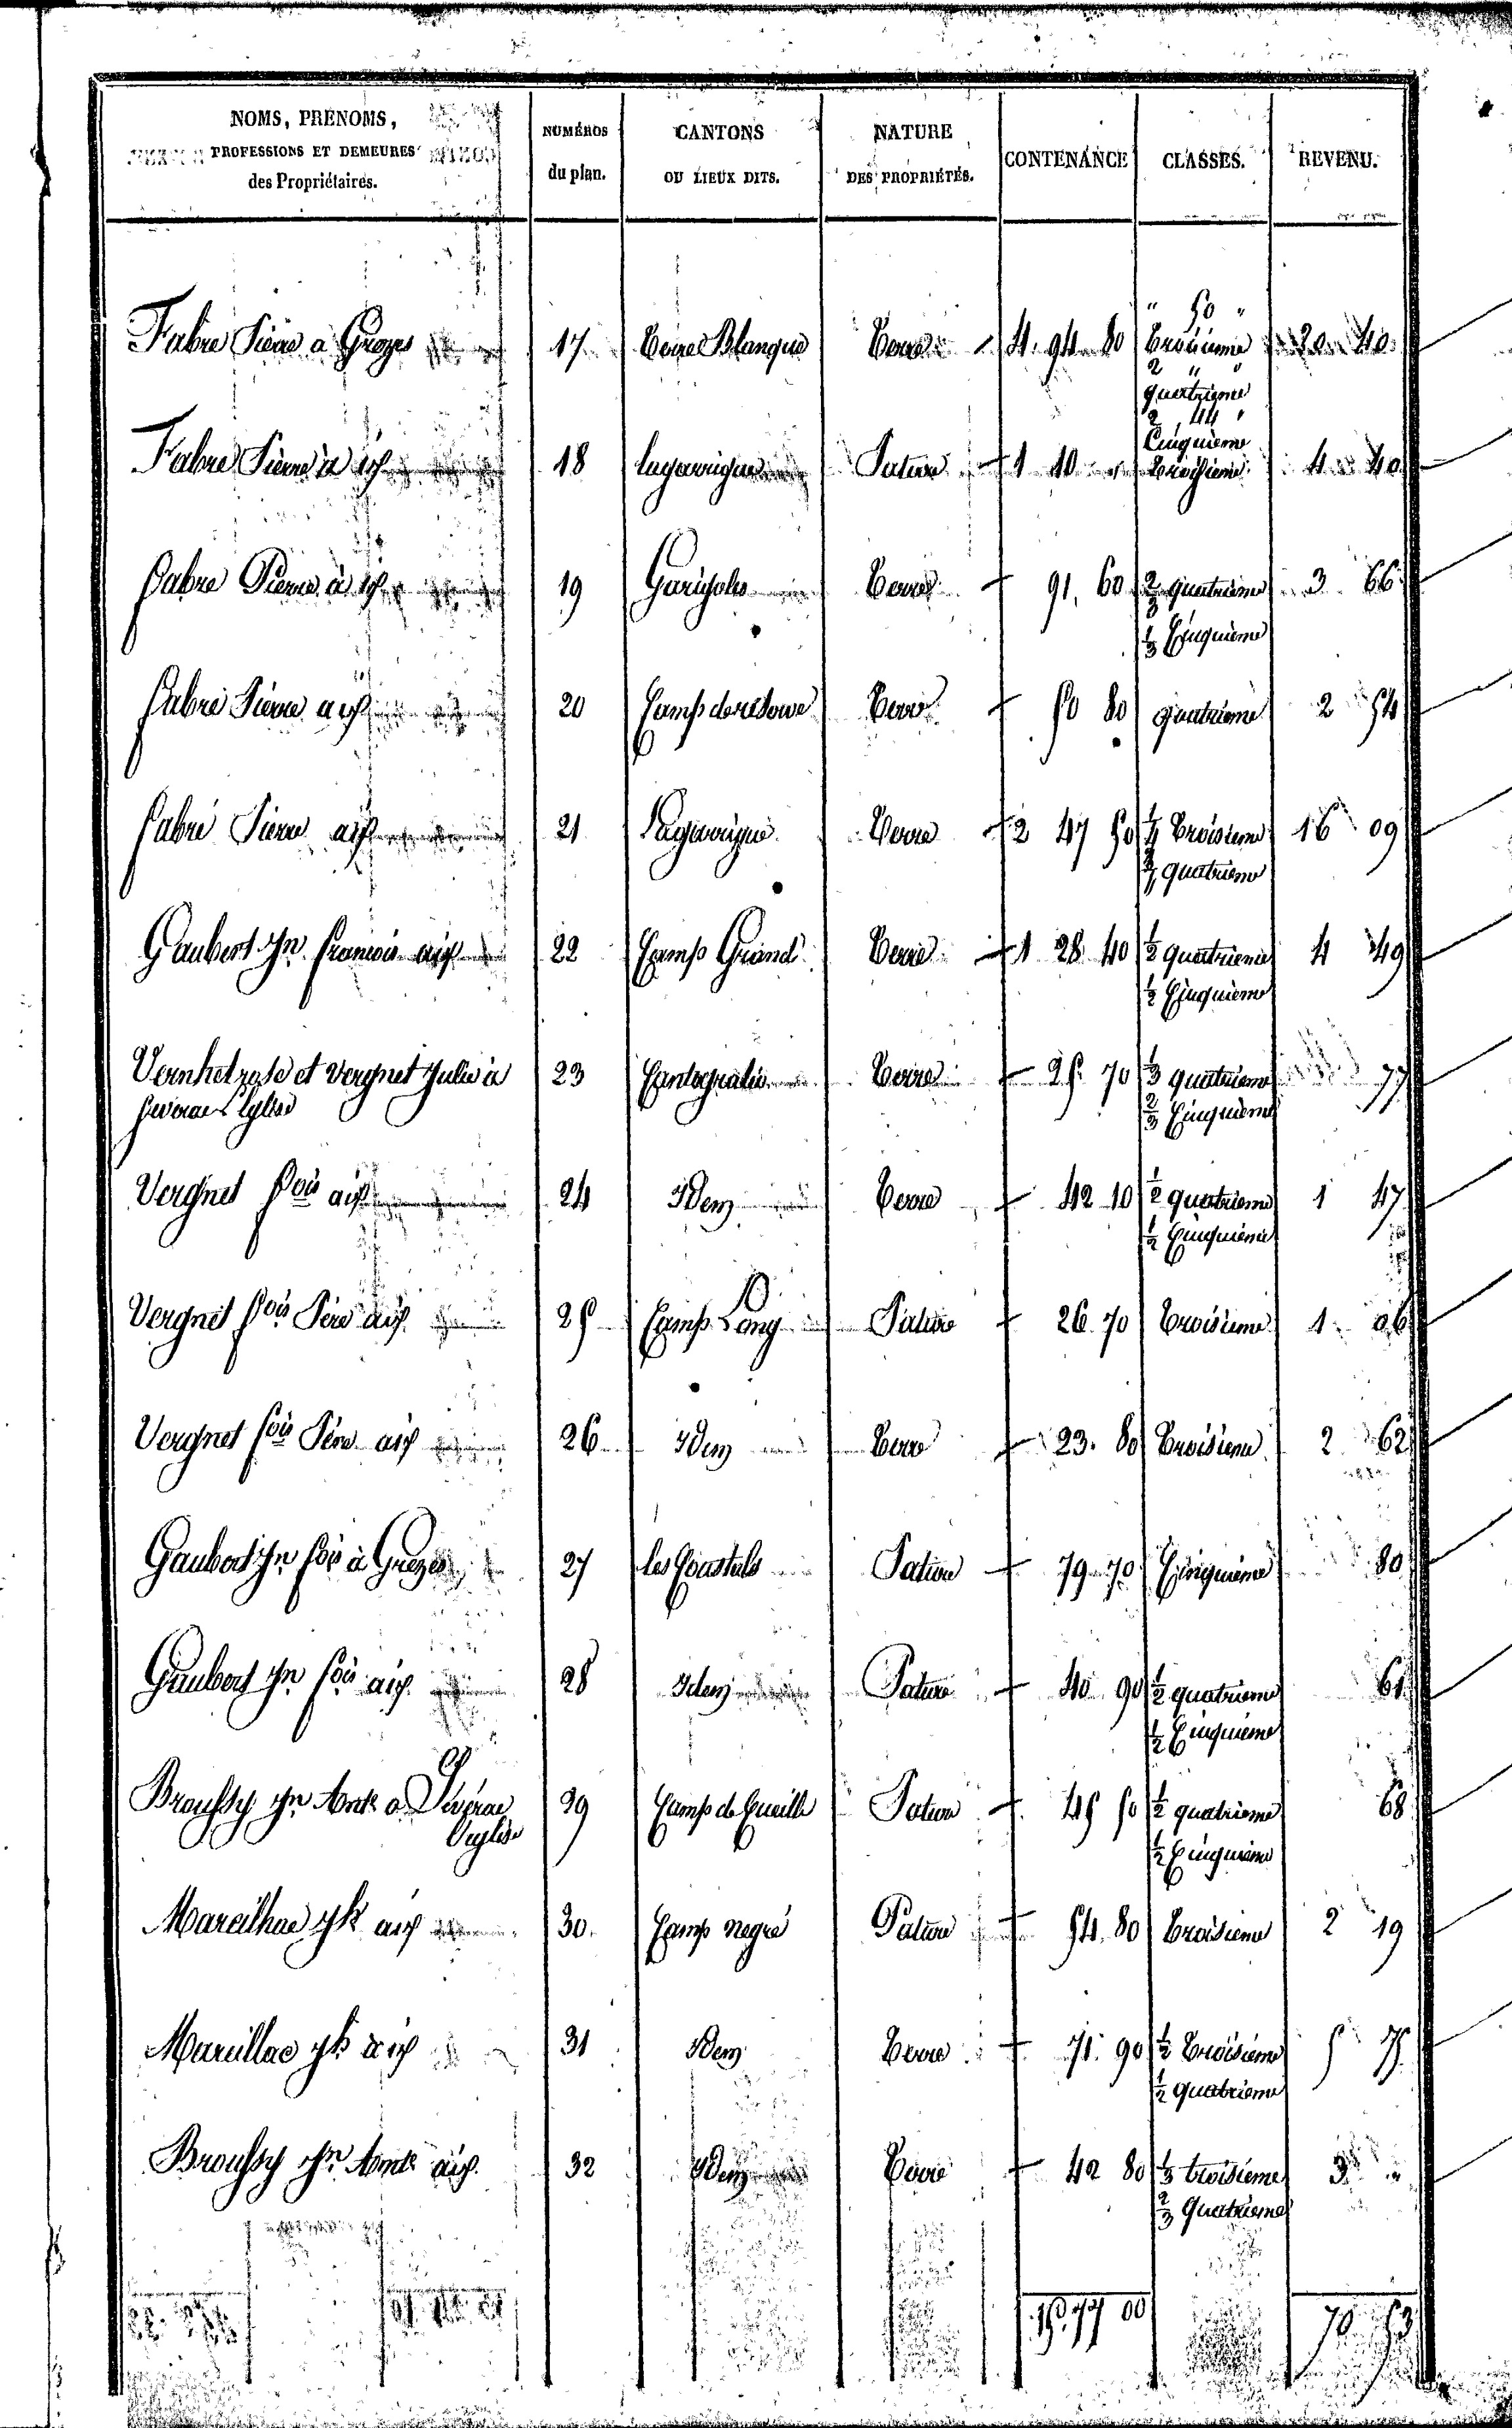 NOMS, PRENOMS, PROFESSIONS ET DEMEURES des Propriétaires. NUMÉROS du plan. CANTONS OU LIEUX DITS. NATURE DES PROPRIÉTÉS. CONTENANCE CLASSES. REVENU.
" 50 "
Fabre Pierre a Grezes 17 Terre Blanque Terre 4. 94 80 Troisieme 20 40
2 " "
quatrieme
2 44 "
Cinquieme
Fabre Pierre a 18 lagarrigue Pature 1 10 " troisieme 4 40
fabre Pierre à 19 Garrigoles Terre 91. 60 2/3 quatrieme 3 66
1/3 Cinquieme
fabre Pierre 20 Camp Terre 50 80 quatrieme 2 54
fabre Pierre 21 Lagarrigue Terre 2 47 50 1/4 Troisieme 16 09
3/4 quatrieme
Gaubert Jn. francois 22 Camp Grand Terre 1 28 40 1/2 quatrieme 4 49
1/2 Cinquieme
Vernhet rose et Vergnet Julie à 23 Cantogralie Terre 25 70 1/3 quatrieme 77
Severac L'église 2/3 Cinquieme
Vergnet fois 24 Idem Terre 42 10 1/2 quatrieme 1 47
1/2 Cinquieme
Vergnet fois Père 25 Camp Long Pature 26 70 troisieme 1 06
Vergnet fois Père 26 Idem Terre 23. 80 Troisieme 2 62
Gaubert Jn fois à Grezes 27 les Coustals Pature 79 70 Cinquieme 80
Gaubert Jn fois 28 Idem Pature 40 90 1/2 quatrieme 61
1/2 Cinquieme
Broussy Jn Ante a Séverac 29 Camp de Cueille Pature 45 50 1/2 quatrieme 68
l'église 1/2 Cinquieme
Mareilhac 30. Camp negré Pature 54. 80 troisieme 2 19
Mareillac 31 Idem Terre 71. 90 1/2 troisieme 5 75
1/2 quatrieme
Broussy Jn Ante 32 Idem Terre 42 80 1/3 troisieme 3 "
2/3 Quatrieme
15. 77 00 70 53